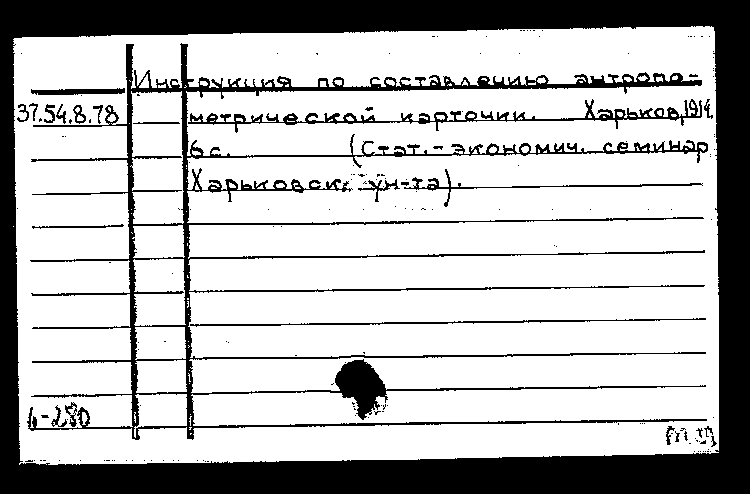 Инструкция по составлению антропо-
37.54.8.78 метрической карточки. Харьков, 1914.
6 с. (Стат.-экономич. семинар
Харьковск. ун-та).
6-280